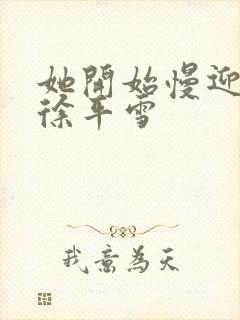 她開始慢迎
徐平雪
我意為天